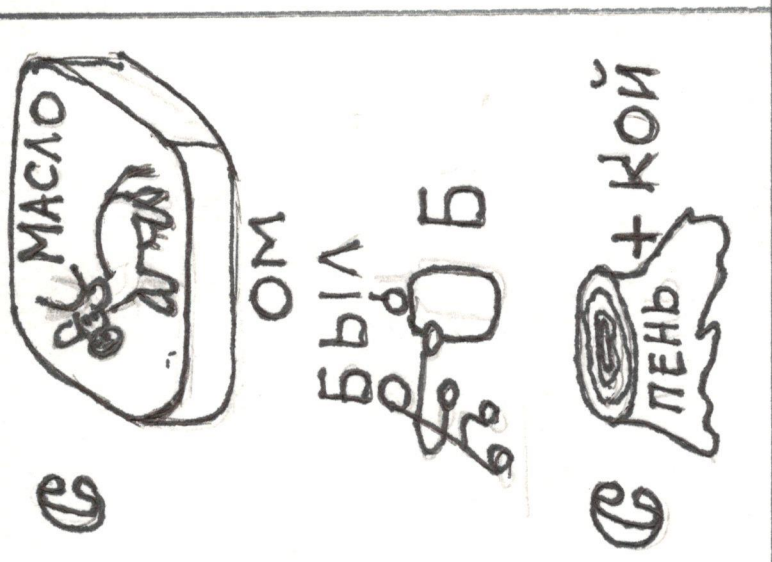 С МАСЛО
ОМ
БЫЛ
Б
С ПЕНЬ + КОЙ